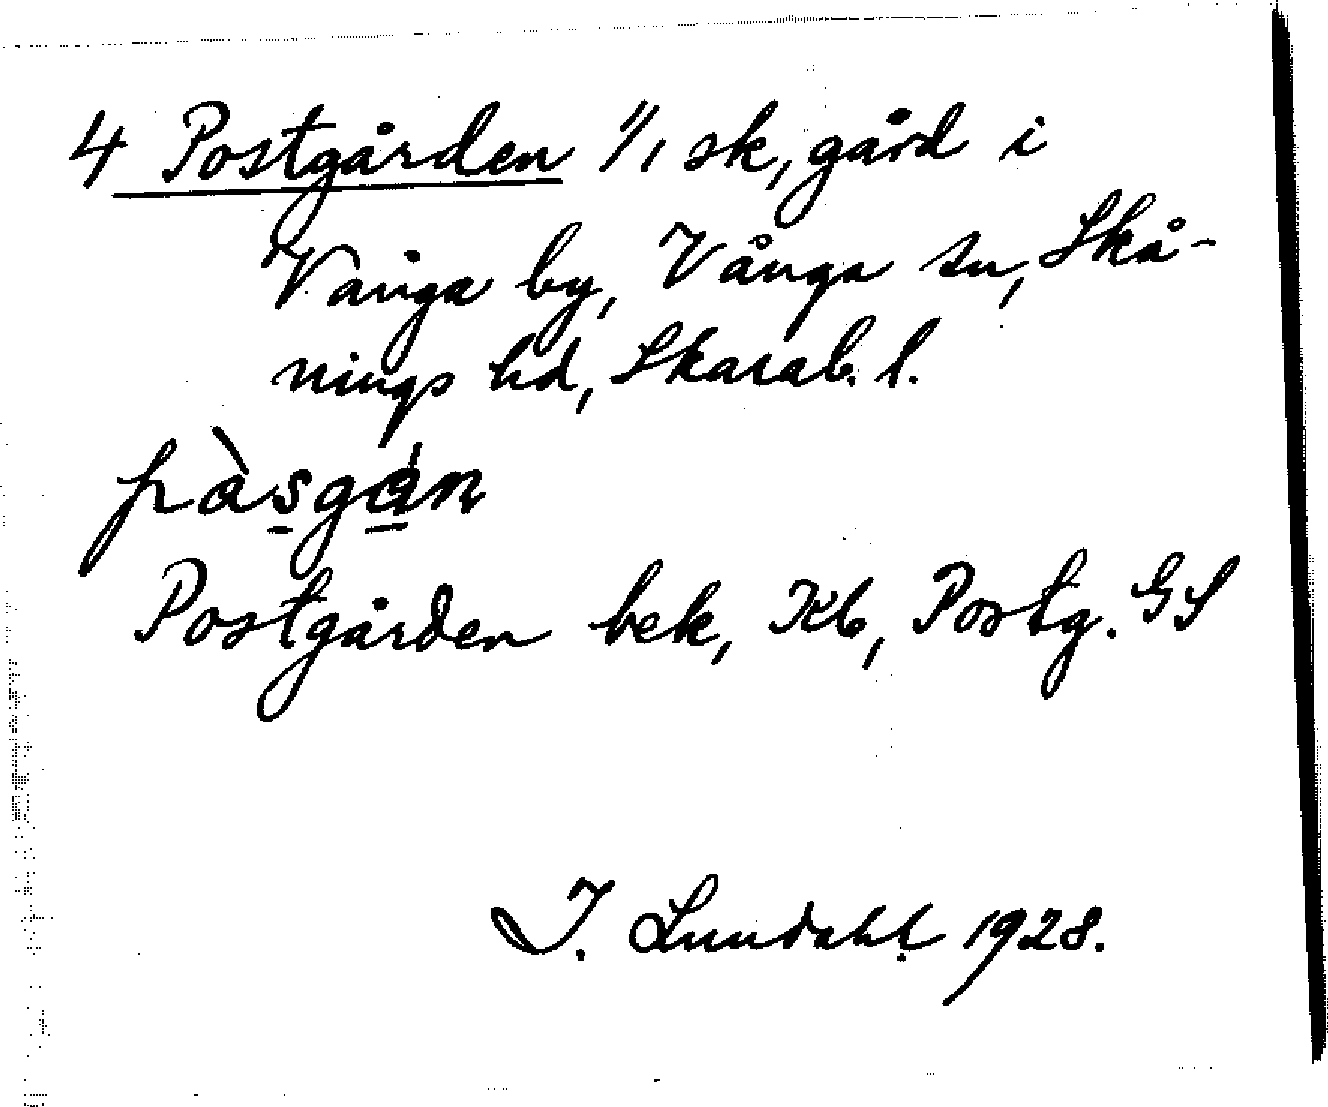 4 Postgården 1/1 sk, gård i
Vånga by, Vånga sn, Skå-
nings hd, Skarab. l.
pàsgán
Postgården bek, Kb, Postg. GS
I. Lundahl 1928.